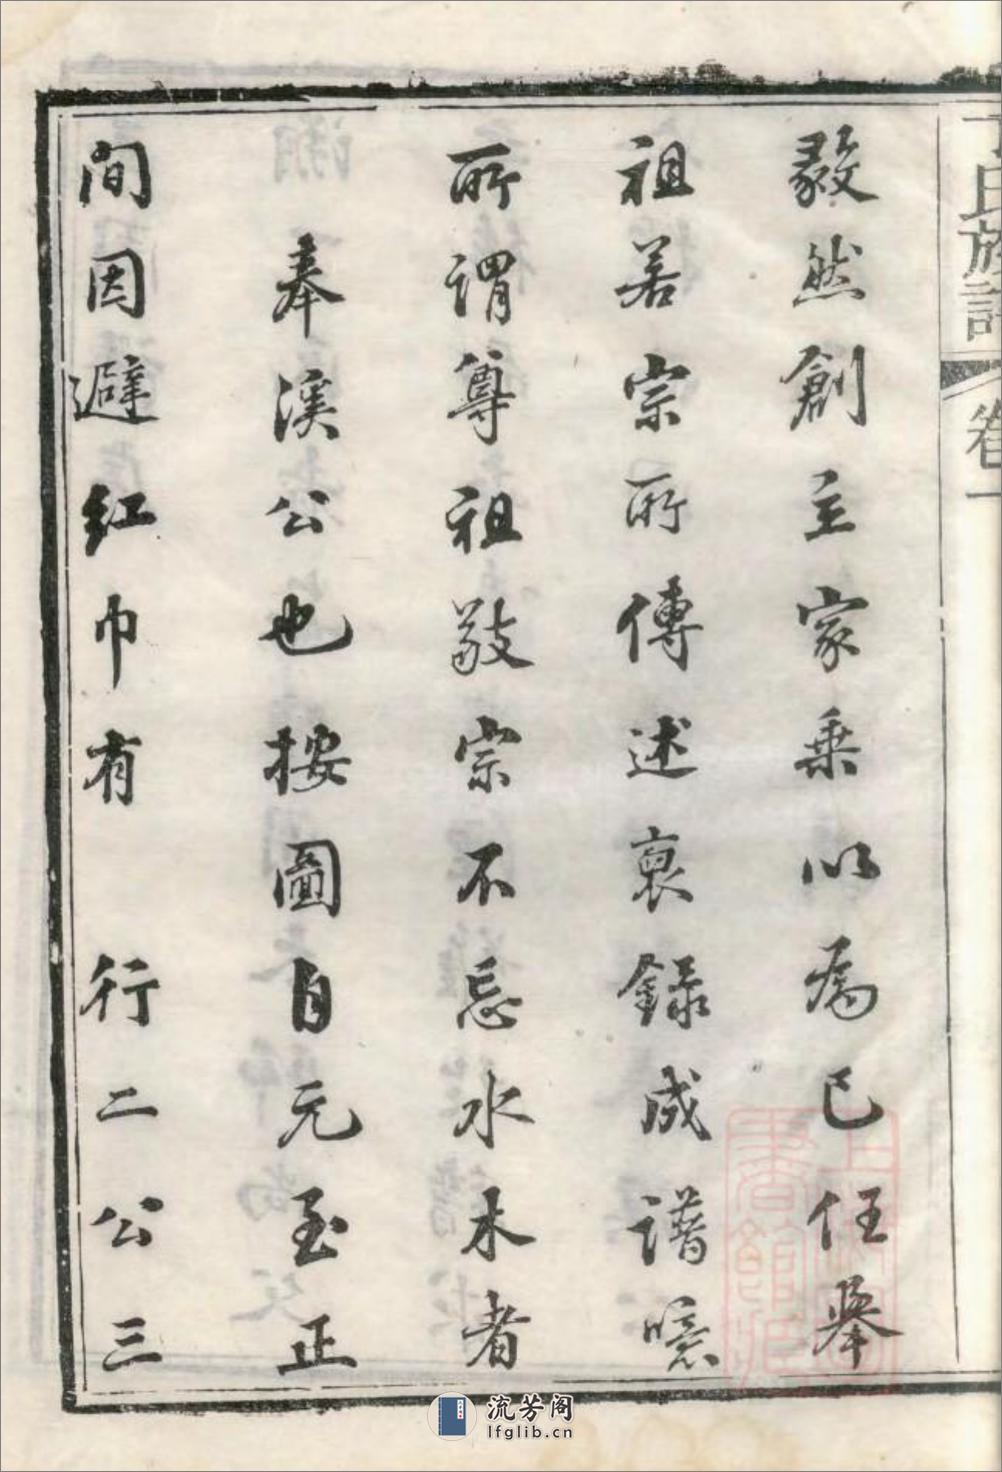 丁氏族譜
卷一
毅然創主家乗以為已任舉
祖若宗所傳述裒錄成譜噫
所謂尊祖敬宗不忘水木者
奉溪公也按圖自元至正
间因避紅巾有 行二公三
流芳阁
lfglib.cn